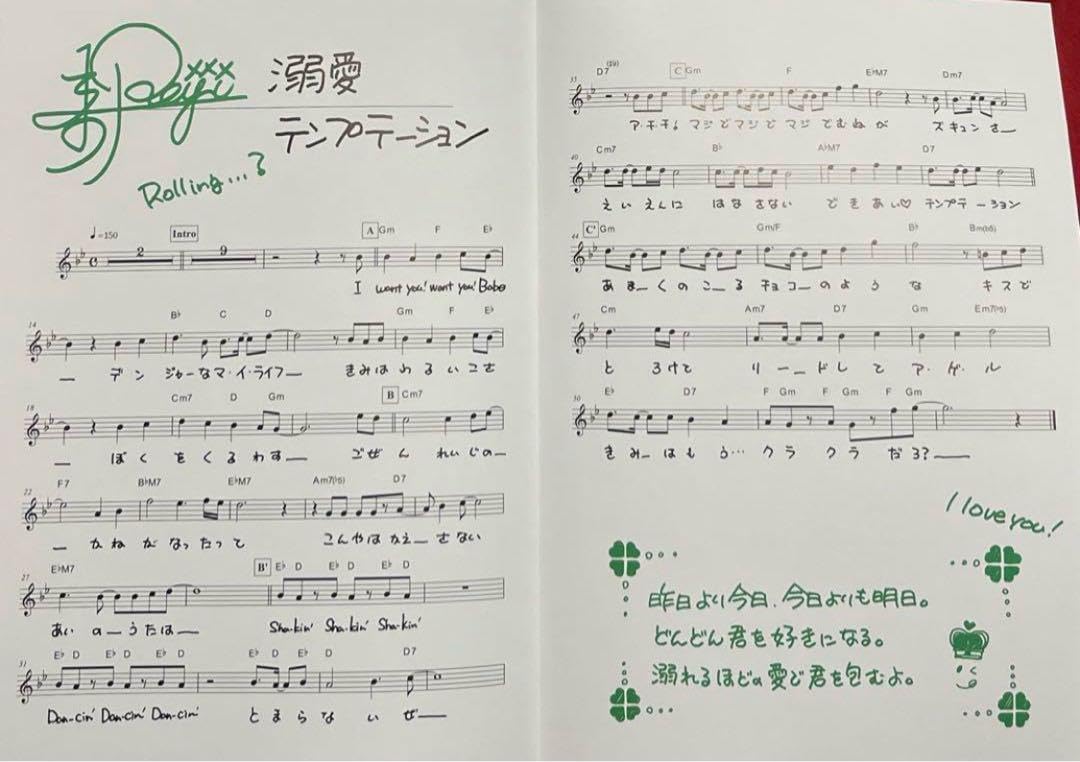 寿
xxx
溺愛
テンプテーション
Rolling...3
♩=150
Intro
A Gm F E♭
2 9
I want you! want you! Babe
14 B♭ C D Gm F E♭
デンジャーなマ・イ・ライフー きみはわるいこさ
18 Cm7 D Gm B Cm7
ー ぼくをくるわすー ごぜんれいじのー
22 F7 B♭M7 E♭M7 Am7(♭5) D7
ー かねがなったって こんやはかえーさない
27 E♭M7 B' E♭ D E♭ D E♭ D
あいのーうたはー Sha-kin' Sha-kin' Sha-kin'
31 E♭ D E♭ D E♭ D E♭ D E♭ D D7
Dan-cin' Dan-cin' Dan-cin' とまらないぜー
35 D7 C Gm F E♭M7 Dm7
ア・チ・チ! マジでマジでマジでむねが ズキュンさー
40 Cm7 B♭ A♭M7 D7
えいえんに はなさない できあい♡ テンプテーション
44 C' Gm Gm/F B♭ Bm(♭5)
あまーくのこーるチョコーのような キスで
47 Cm Am7 D7 Gm Em7(♭5)
とろけて リーードして ア・ゲ・ル
50 E♭ D7 F Gm F Gm F Gm
きみーはもう… クラクラだろ?ー
I love you!
昨日より今日、今日よりも明日。
どんどん君を好きになる。
溺れるほどの愛で君を包むよ。